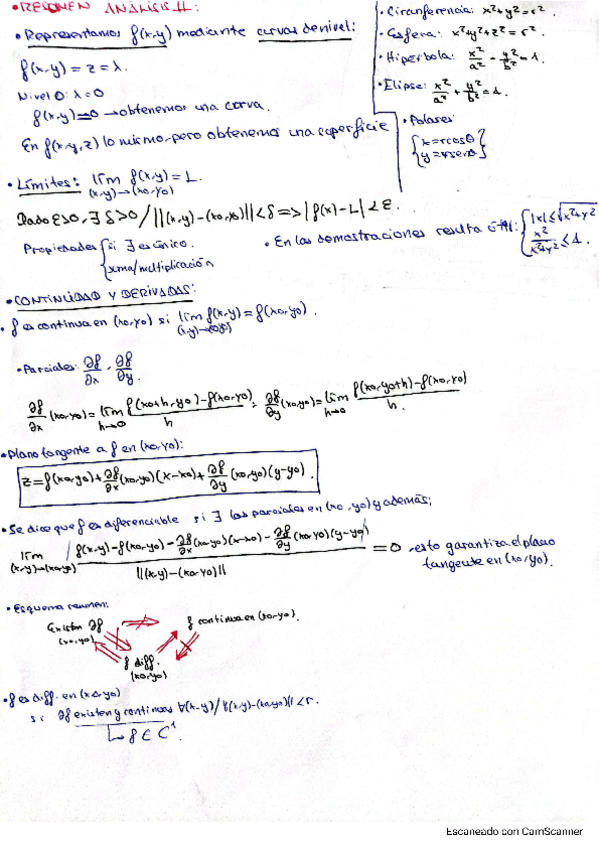 • RESUMEN ANÁLISIS II:
• Representamos f(x,y) mediante curvas de nivel:
f(x,y) = z = λ.
Nivel 0: λ=0
f(x,y)=0 → obtenemos una curva.
En f(x,y,z) lo mismo, pero obtenemos una superficie
• Circunferencia: x²+y²=r².
• Esfera: x²+y²+z²=r².
• Hipérbola: x²/a² - y²/b² = 1.
• Elipse: x²/a² + y²/b² = 1.
• Polares:
{x=rcosθ
y=rsenθ}
• Límites: lím f(x,y) = L.
(x,y)→(x0,y0)
Dado ε>0, ∃ δ>0 / ||(x,y)-(x0,y0)|| < δ => |f(x)-L| < ε.
Propiedades { si ∃ es único.
suma/multiplicación
• En las demostraciones resulta útil: { |x| ≤ √x²+y²
x²/x²+y² ≤ 1.
• CONTINUIDAD Y DERIVADAS:
• f es continua en (x0,y0) si lím f(x,y) = f(x0,y0).
(x,y)→(x0,y0)
• Parciales: ∂f/∂x, ∂f/∂y.
∂f/∂x (x0,y0) = lím h→0 f(x0+h,y0)-f(x0,y0)/h ; ∂f/∂y (x0,y0) = lím h→0 f(x0,y0+h)-f(x0,y0)/h.
• Plano tangente a f en (x0,y0):
z = f(x0,y0) + ∂f/∂x (x0,y0)(x-x0) + ∂f/∂y (x0,y0)(y-y0).
• Se dice que f es diferenciable si ∃ las parciales en (x0,y0) y además;
lím (x,y)→(x0,y0) |f(x,y)-f(x0,y0)-∂f/∂x (x0,y0)(x-x0)-∂f/∂y (x0,y0)(y-y0)| / ||(x,y)-(x0,y0)|| = 0 → esto garantiza el plano
tangente en (x0,y0).
• Esquema resumen:
Existen ∂f
(x0,y0)
f continua en (x0,y0).
f diff.
(x0,y0)
• f es diff. en (x0,y0)
si ∂f existen y continuas ∀(x,y) / ||(x,y)-(x0,y0)|| < r.
↳ f ∈ C¹.
Escaneado con CamScanner